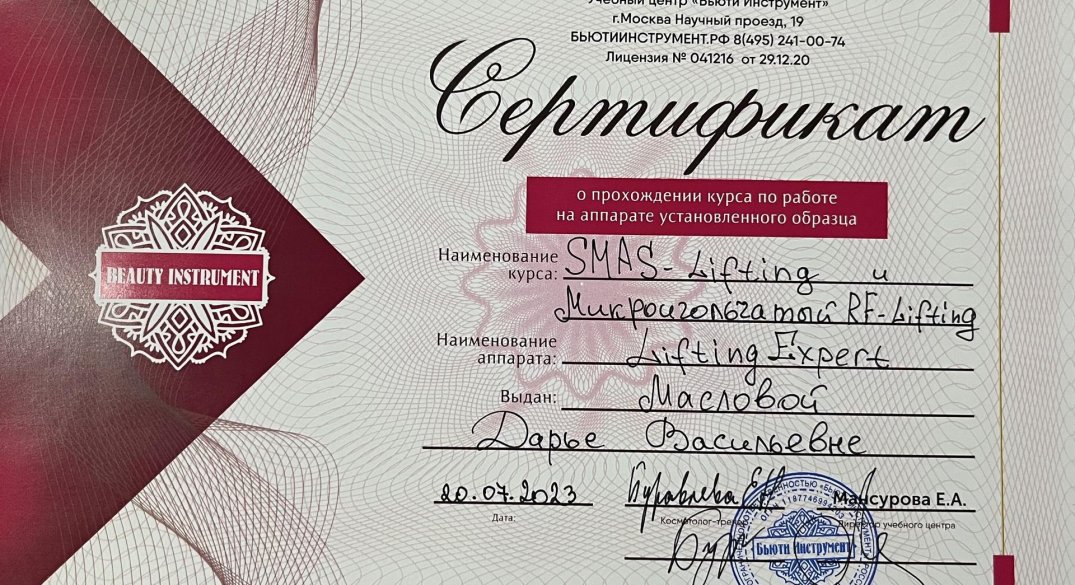 Учебный центр «Бьюти Инструмент»
г.Москва Научный проезд, 19
БЬЮТИИНСТРУМЕНТ.РФ 8(495) 241-00-74
Лицензия № 041216 от 29.12.20
Сертификат
о прохождении курса по работе
на аппарате установленного образца
BEAUTY INSTRUMENT
Наименование курса: SMAS-Lifting и
Микроигольчатый RF-Lifting
Наименование аппарата: Lifting Expert
Выдан: Масловой
Дарье Васильевне
20.07.2023 Мансурова Е.А.
Дата: Косметолог-тренер Директор учебного центра
Бьюти Инструмент